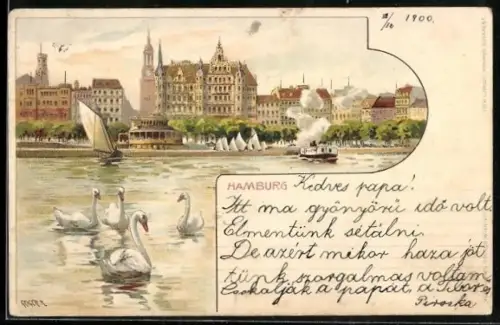 III/10 1900.
HAMBURG
Kedves papa!
Itt ma gyönyörű idő volt.
Elmentünk sétálni.
De azért mikor haza jöt
tünk szorgalmas voltam
Csókolják a papát a Tibor és
Piroska